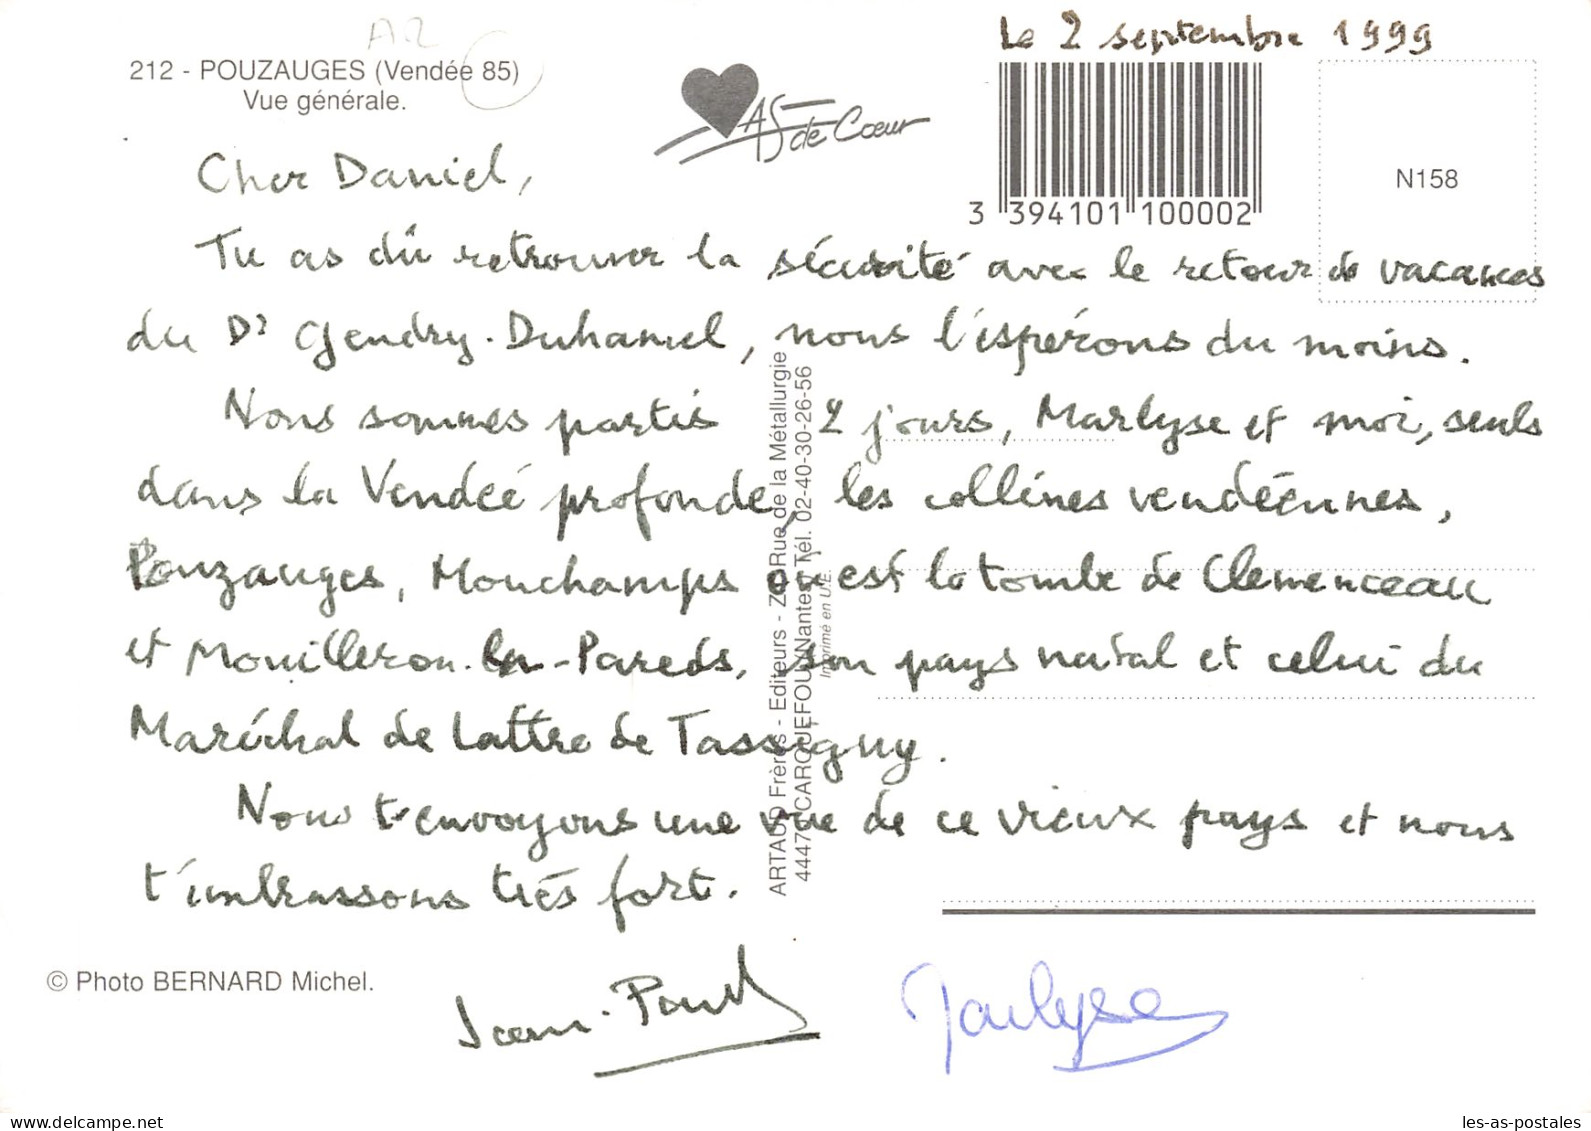 Le 2 septembre 1999
A2
212 - POUZAUGES (Vendée 85)
Vue générale.
AS de Cœur
N158
3 394101 100002
Cher Daniel,
Tu as dû retrouver la sécurité avec le retour de vacances
du Dr Gendry-Duhamel, nous l'espérons du moins.
Nous sommes partis 2 jours, Marlyse et moi, seuls
dans la Vendée profonde, les collines vendéennes,
Pouzauges, Mouchamps où est la tombe de Clemenceau
et Mouilleron-en-Pareds, son pays natal et celui du
Maréchal de Lattre de Tassigny.
Nous t'envoyons une vue de ce vieux pays et nous
t'embrassons très fort.
ARTAUD Frères - Editeurs - Z. Rue de la Métallurgie
44470 CARQUEFOU/Nantes Tél. 02-40-30-26-56
Imprimé en U.E.
© Photo BERNARD Michel.
Jean-Paul
Marlyse
www.delcampe.net
les-as-postales